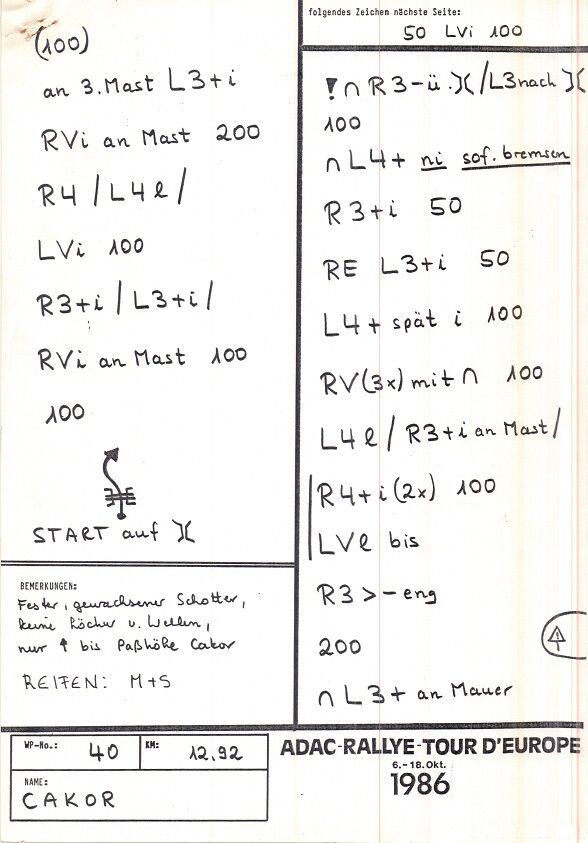 (100)
an 3. Mast L3+i
RVi an Mast 200
R4 / L4l /
LVi 100
R3+i / L3+i /
RVi an Mast 100
100
START auf )(
BEMERKUNGEN:
Fester, gewachsener Schotter,
keine Löcher u. Wellen,
nur ↑ bis Paßhöhe Cakor
REIFEN: M+S
folgendes Zeichen nächste Seite:
50 LVi 100
! ∩ R3-ü. )( / L3 nach )(
100
∩ L4+ ni sof. bremsen
R3+i 50
RE L3+i 50
L4+ spät i 100
RV(3x) mit ∩ 100
L4l / R3+i an Mast /
R4+i (2x) 100
LVl bis
R3 > - eng
200
∩ L3+ an Mauer
WP-No.: 40 KM: 12,92
NAME:
CAKOR
ADAC-RALLYE-TOUR D'EUROPE
6.-18. Okt.
1986